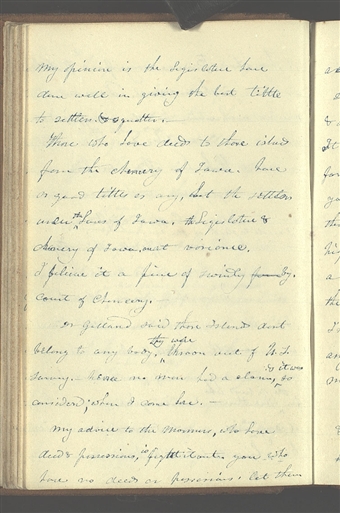 My opinion is the Legislature have
done well in giving the best tittle
to settlers & squatters. —
Those who have deeds to those islands
from the chancery of Iawa. have
as good tittles as any, but the settlers
under the Laws of Iawa. the Legislature &
chancery of Iawa. are at varience.
I believe it a piece of
Court of Chancery.
Dr Galland said those Islands dont
belong to any body, they were thrown out of U. S.
Survey. — Hence no man had a claim, & it was so
considerd; when I come here. —
my advice to the Mormons, who have
deeds & possessions, is fight it out. you who
have no deeds or possessions. let them